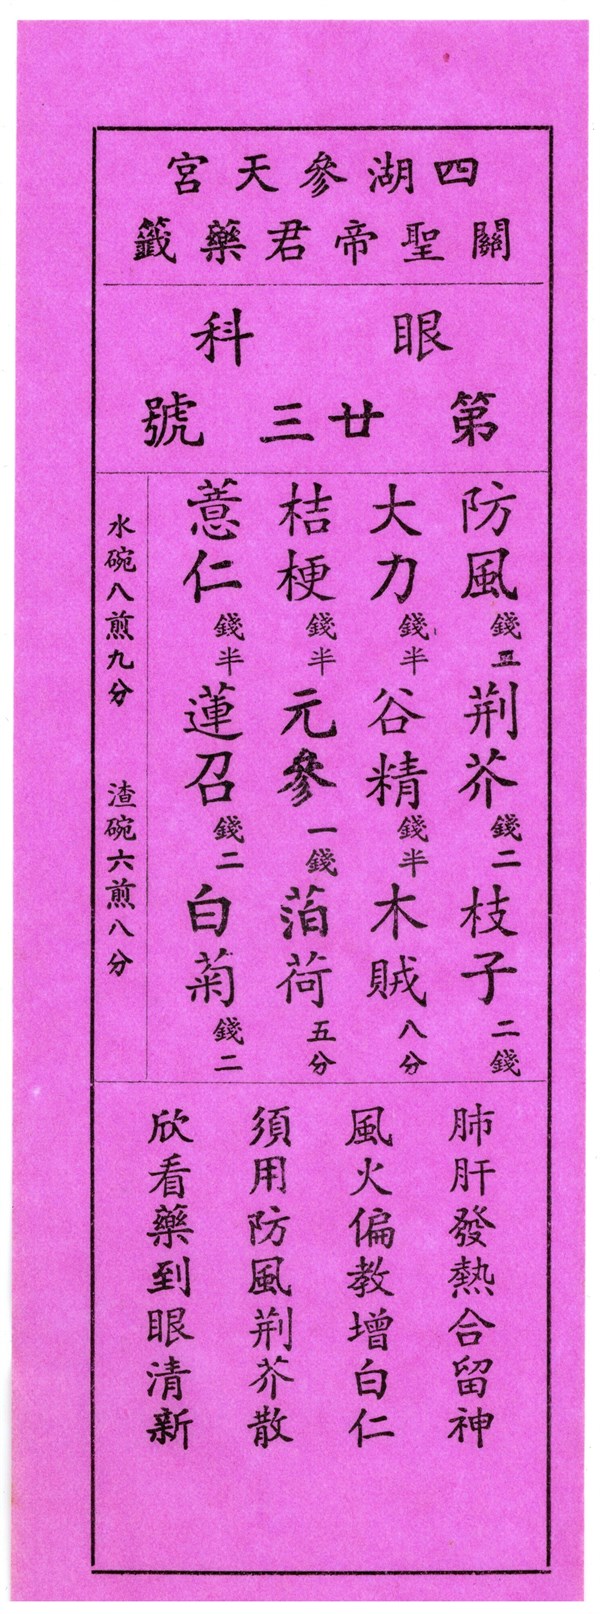 四湖參天宮
關聖帝君藥籤
眼科
第廿三號
防風錢五荆芥錢二枝子二錢
大力錢半谷精錢半木賊八分
桔梗錢半元參一錢萡荷五分
薏仁錢半蓮召錢二白菊錢二
水碗八煎九分 渣碗六煎八分
肺肝發熱合留神
風火偏教增白仁
須用防風荆芥散
欣看藥到眼清新